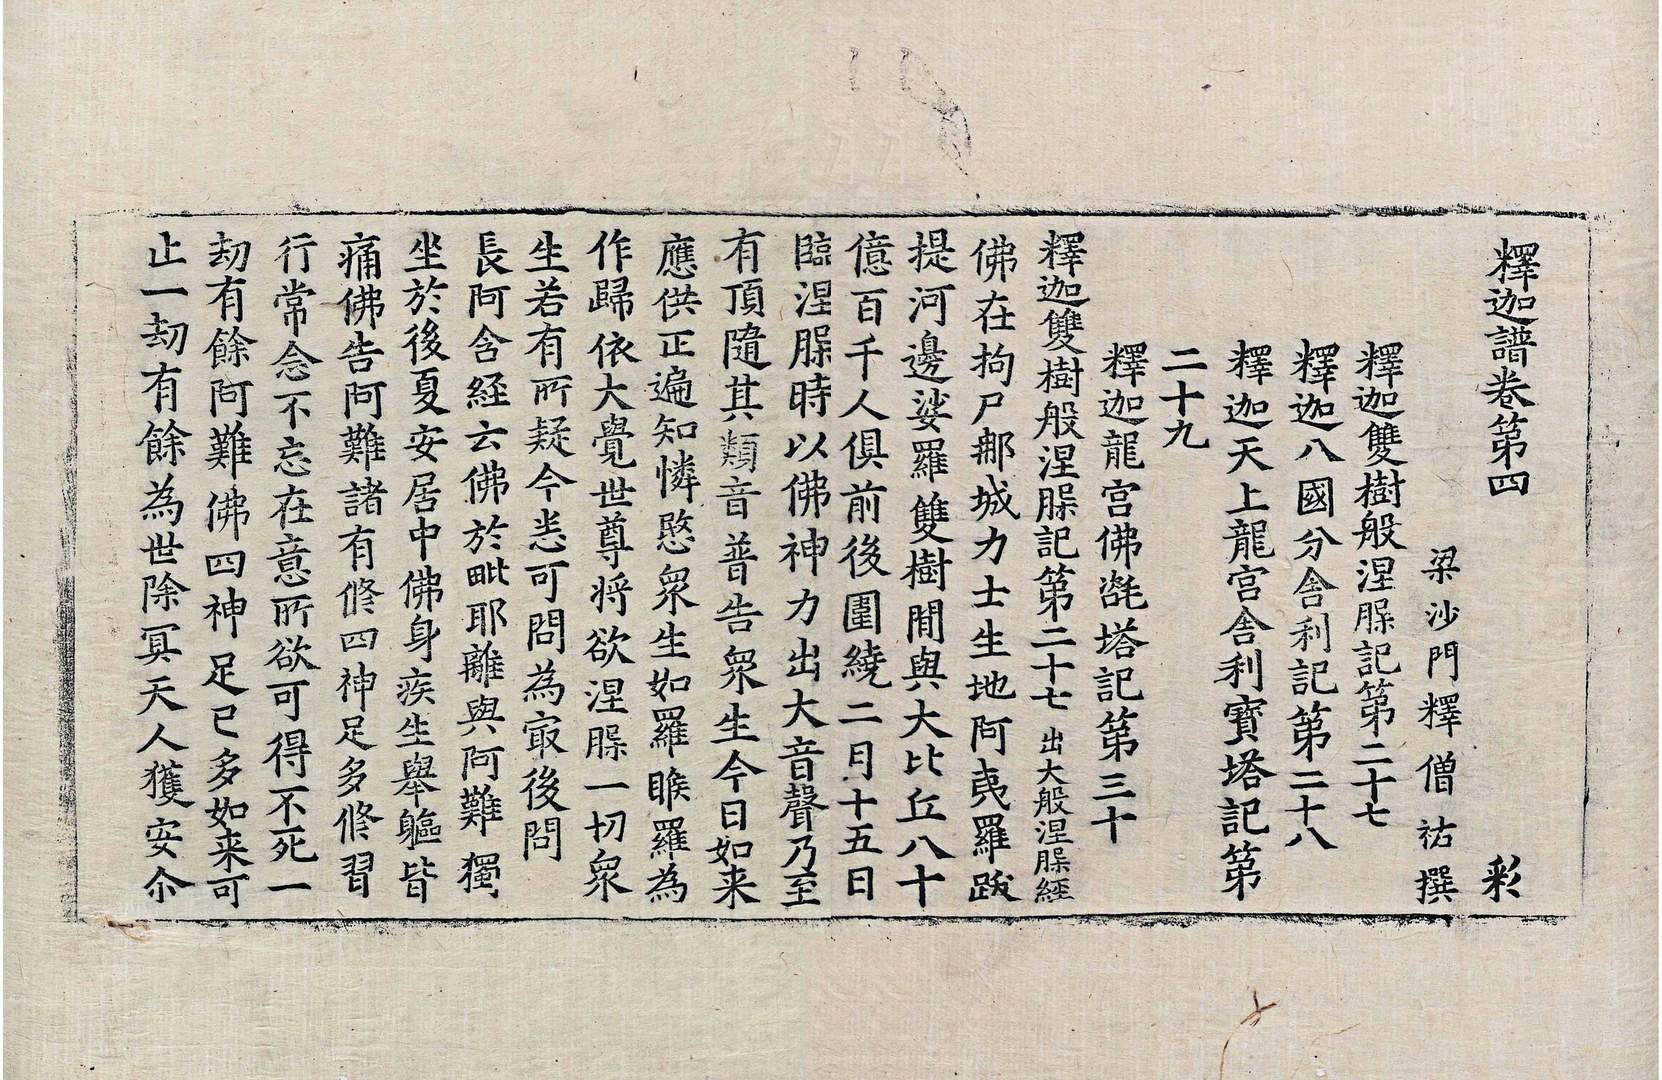 釋迦譜卷第四 彩
梁沙門釋僧祐撰
釋迦雙樹般涅槃記第二十七
釋迦八國分舍利記第二十八
釋迦天上龍宮舍利寶塔記第
二十九
釋迦龍宮佛髭塔記第三十
釋迦雙樹般涅槃記第二十七 出大般涅槃經
佛在拘尸那城力士生地阿夷羅跋
提河邊娑羅雙樹閒與大比丘八十
億百千人俱前後圍繞二月十五日
臨涅槃時以佛神力出大音聲乃至
有頂隨其類音普告衆生今日如来
應供正遍知憐愍衆生如羅睺羅為
作歸依大覺世尊將欲涅槃一切衆
生若有所疑今悉可問為冣後問
長阿含経云佛於毗耶離與阿難獨
坐於後夏安居中佛身疾生舉軀皆
痛佛告阿難諸有修四神足多修習
行常念不忘在意所欲可得不死一
劫有餘阿難佛四神足已多如来可
止一劫有餘為世除冥天人獲安尒